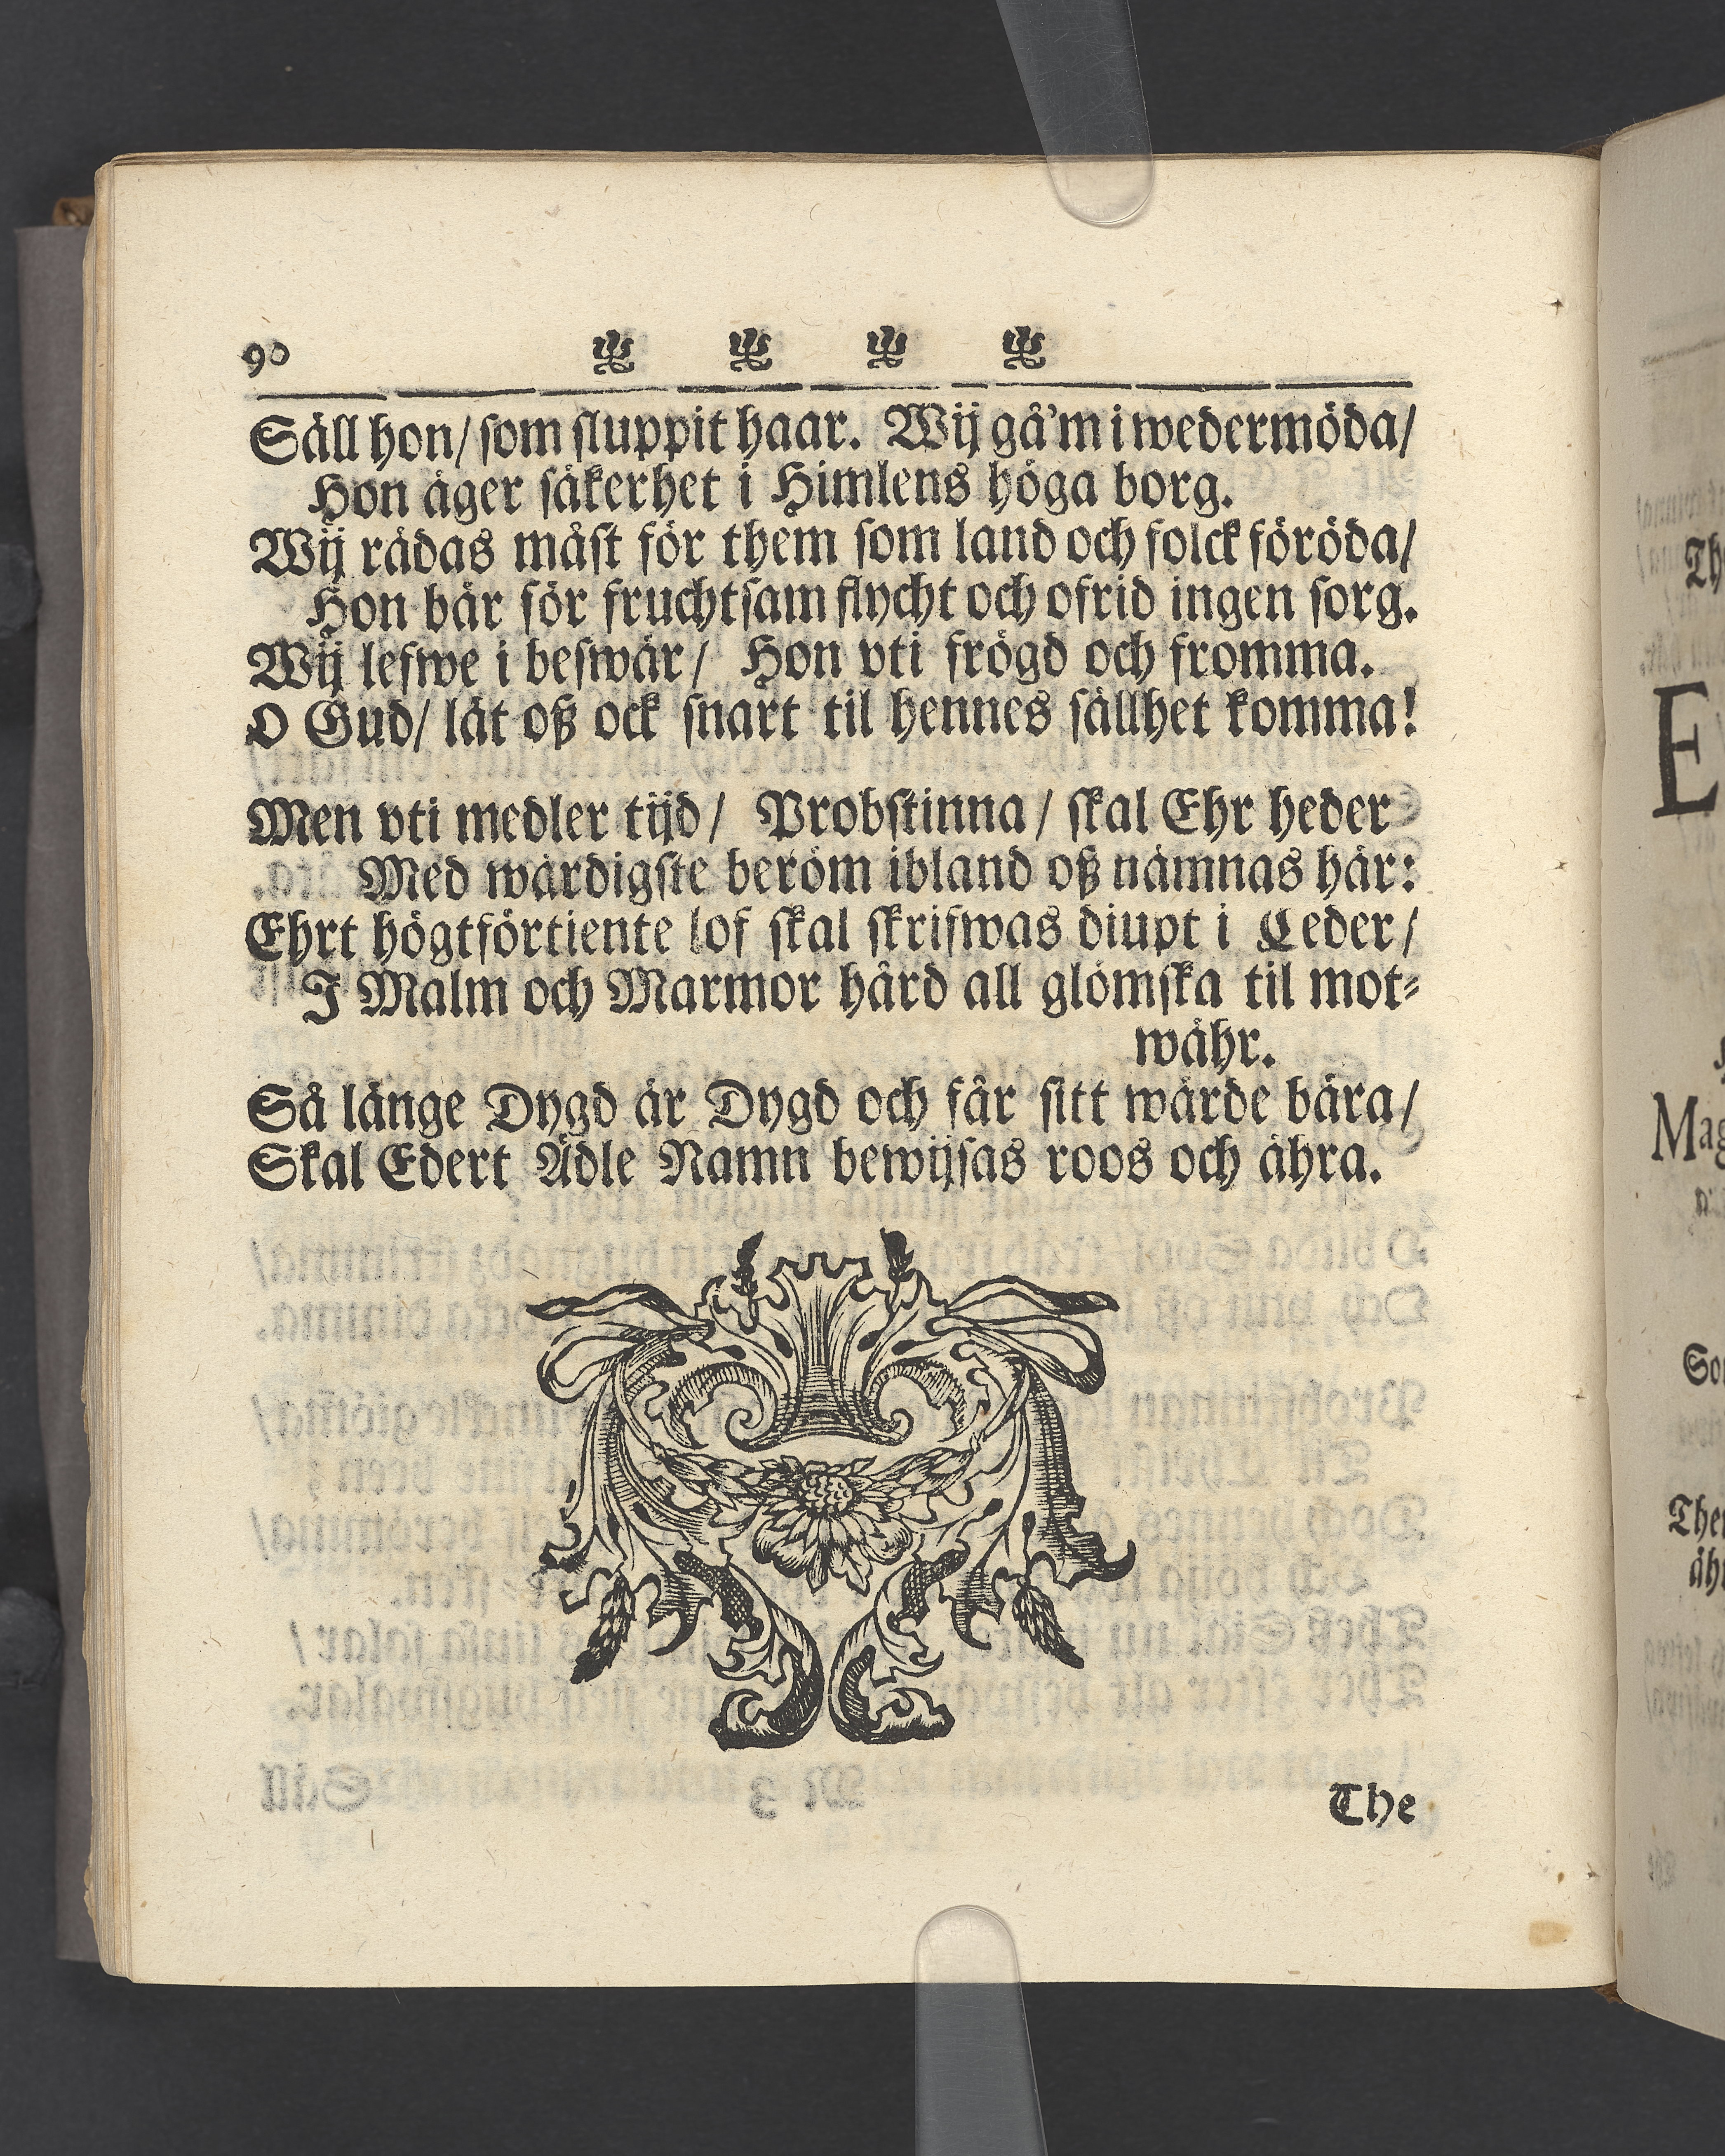 90
Säll hon/ som sluppit haar. Wij gå'm i wedermöda/
Hon äger säkerhet i Himlens höga borg.
Wij rädas mäst för them som land och folck föröda/
Hon bär för fruchtsam flycht och ofrid ingen sorg.
Wij lefwe i beswär/ Hon vti frögd och fromma.
O Gud/ låt oß ock snart til hennes sällhet komma!
Men vti medler tijd/ Probstinna/ skal Ehr heder
Med wärdigste beröm ibland oß nämnas här:
Ehrt högtförtiente lof skal skrifwas diupt i Ceder/
I Malm och Marmor hård all glömska til mot-
währ.
Så länge Dygd är Dygd och får sitt wärde bära/
Skal Edert Ädle Namn bewijsas roos och ähra.
The
Th
E
Mag
Som
Then